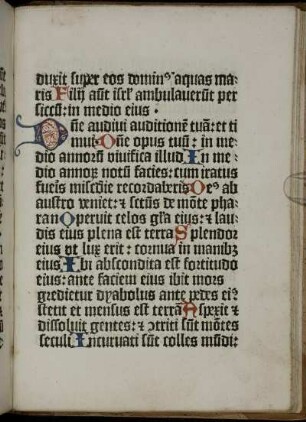 duxit super eos dominꝰ aquas ma
ris Filij aūt isrl̄ ambulauerūt per
siccū: in medio eius ·
Dn̄e audiui auditionem tuā: et ti
mui One opus tuū: in me
dio annorū viuifica illud In me
dio annoꝝ notū facies: cum iratus
fueris misc̄die recordaberis Oeꝰ ab
austro veniet: ⁊ sctūs de mōte pha
ran Operuit celos glīa eius: ⁊ lau
dis eius plena est terra Splendor
eius vt lux erit: cornua in manibꝫ
eius Ibi abscondita est fortitudo
eius: ante faciem eius ibit mors
gredietur dyabolus ante pedes eiꝰ
stetit et mensus est terrā Aspexit ⁊
dissoluit gentes: ⁊ ꝯtriti sūt mōtes
seculi Incuruati sūt colles mūdi: